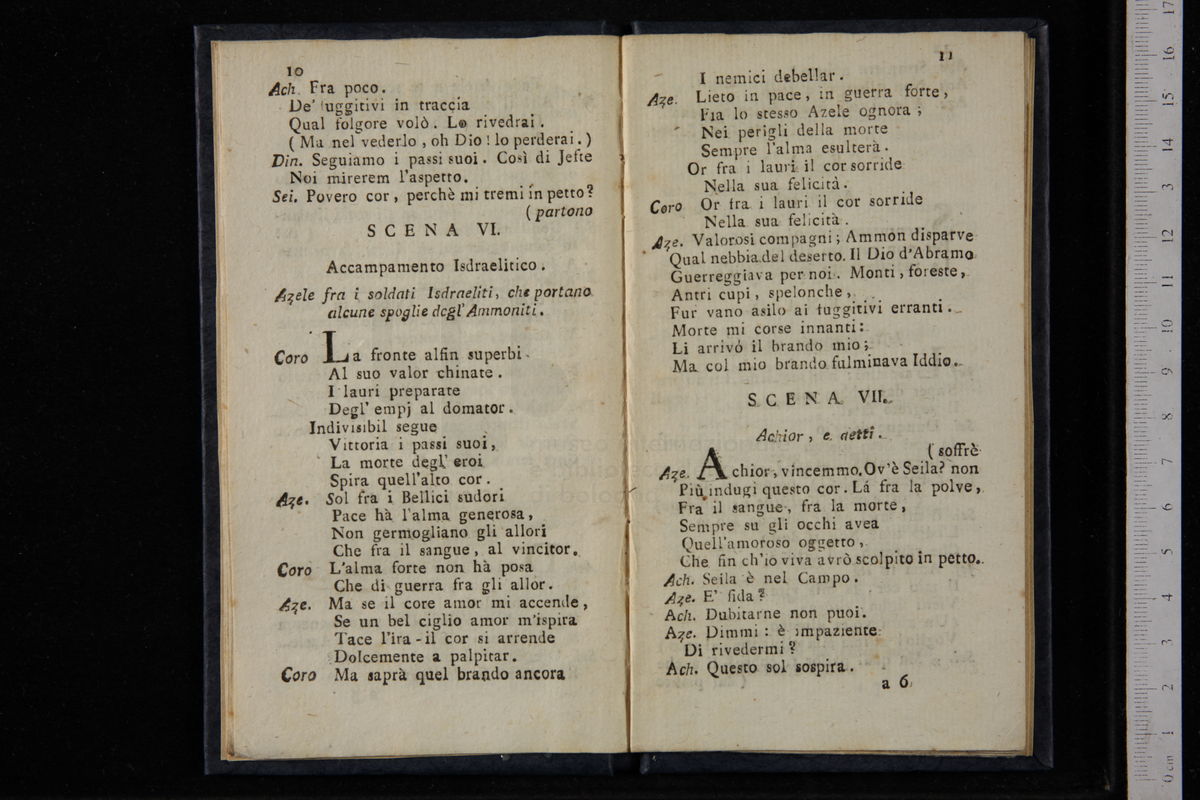 10
Ach. Fra poco.
De' fuggitivi in traccia
Qual folgore volò. Lo rivedrai.
(Ma nel vederlo, oh Dio! lo perderai.)
Din. Seguiamo i passi suoi. Così di Jefte
Noi mirerem l'aspetto.
Sei. Povero cor, perchè mi tremi in petto?
(partono
SCENA VI.
Accampamento Isdraelitico.
Azele fra i soldati Isdraeliti, che portano
alcune spoglie degl' Ammoniti.
Coro La fronte alfin superbi
Al suo valor chinate.
I lauri preparate
Degl' empj al domator.
Indivisibil segue
Vittoria i passi suoi,
La morte degl' eroi
Spira quell'alto cor.
Aze. Sol fra i Bellici sudori
Pace hà l'alma generosa,
Non germogliano gli allori
Che fra il sangue, al vincitor.
Coro L'alma forte non hà posa
Che di guerra fra gli allor.
Aze. Ma se il core amor mi accende,
Se un bel ciglio amor m'ispira
Tace l'ira - il cor si arrende
Dolcemente a palpitar.
Coro Ma saprà quel brando ancora
11
I nemici debellar.
Aze. Lieto in pace, in guerra forte,
Fia lo stesso Azele ognora;
Nei perigli della morte
Sempre l'alma esulterà.
Or fra i lauri il cor sorride
Nella sua felicità.
Coro Or fra i lauri il cor sorride
Nella sua felicità.
Aze. Valorosi compagni; Ammon disparve
Qual nebbia del deserto. Il Dio d'Abramo
Guerreggiava per noi. Monti, foreste,
Antri cupi, spelonche,
Fur vano asilo ai fuggitivi erranti.
Morte mi corse innanti:
Li arrivò il brando mio;
Ma col mio brando fulminava Iddio.
SCENA VII.
Achior, e detti.
(soffrè
Aze. Achior, vincemmo. Ov'è Seila? non
Più indugi questo cor. Là fra la polve,
Fra il sangue, fra la morte,
Sempre su gli occhi avea
Quell'amoroso oggetto,
Che fin ch'io viva avrò scolpito in petto.
Ach. Seila è nel Campo.
Aze. E' fida?
Ach. Dubitarne non puoi.
Aze. Dimmi: è impaziente
Di rivedermi?
Ach. Questo sol sospira.
a 6